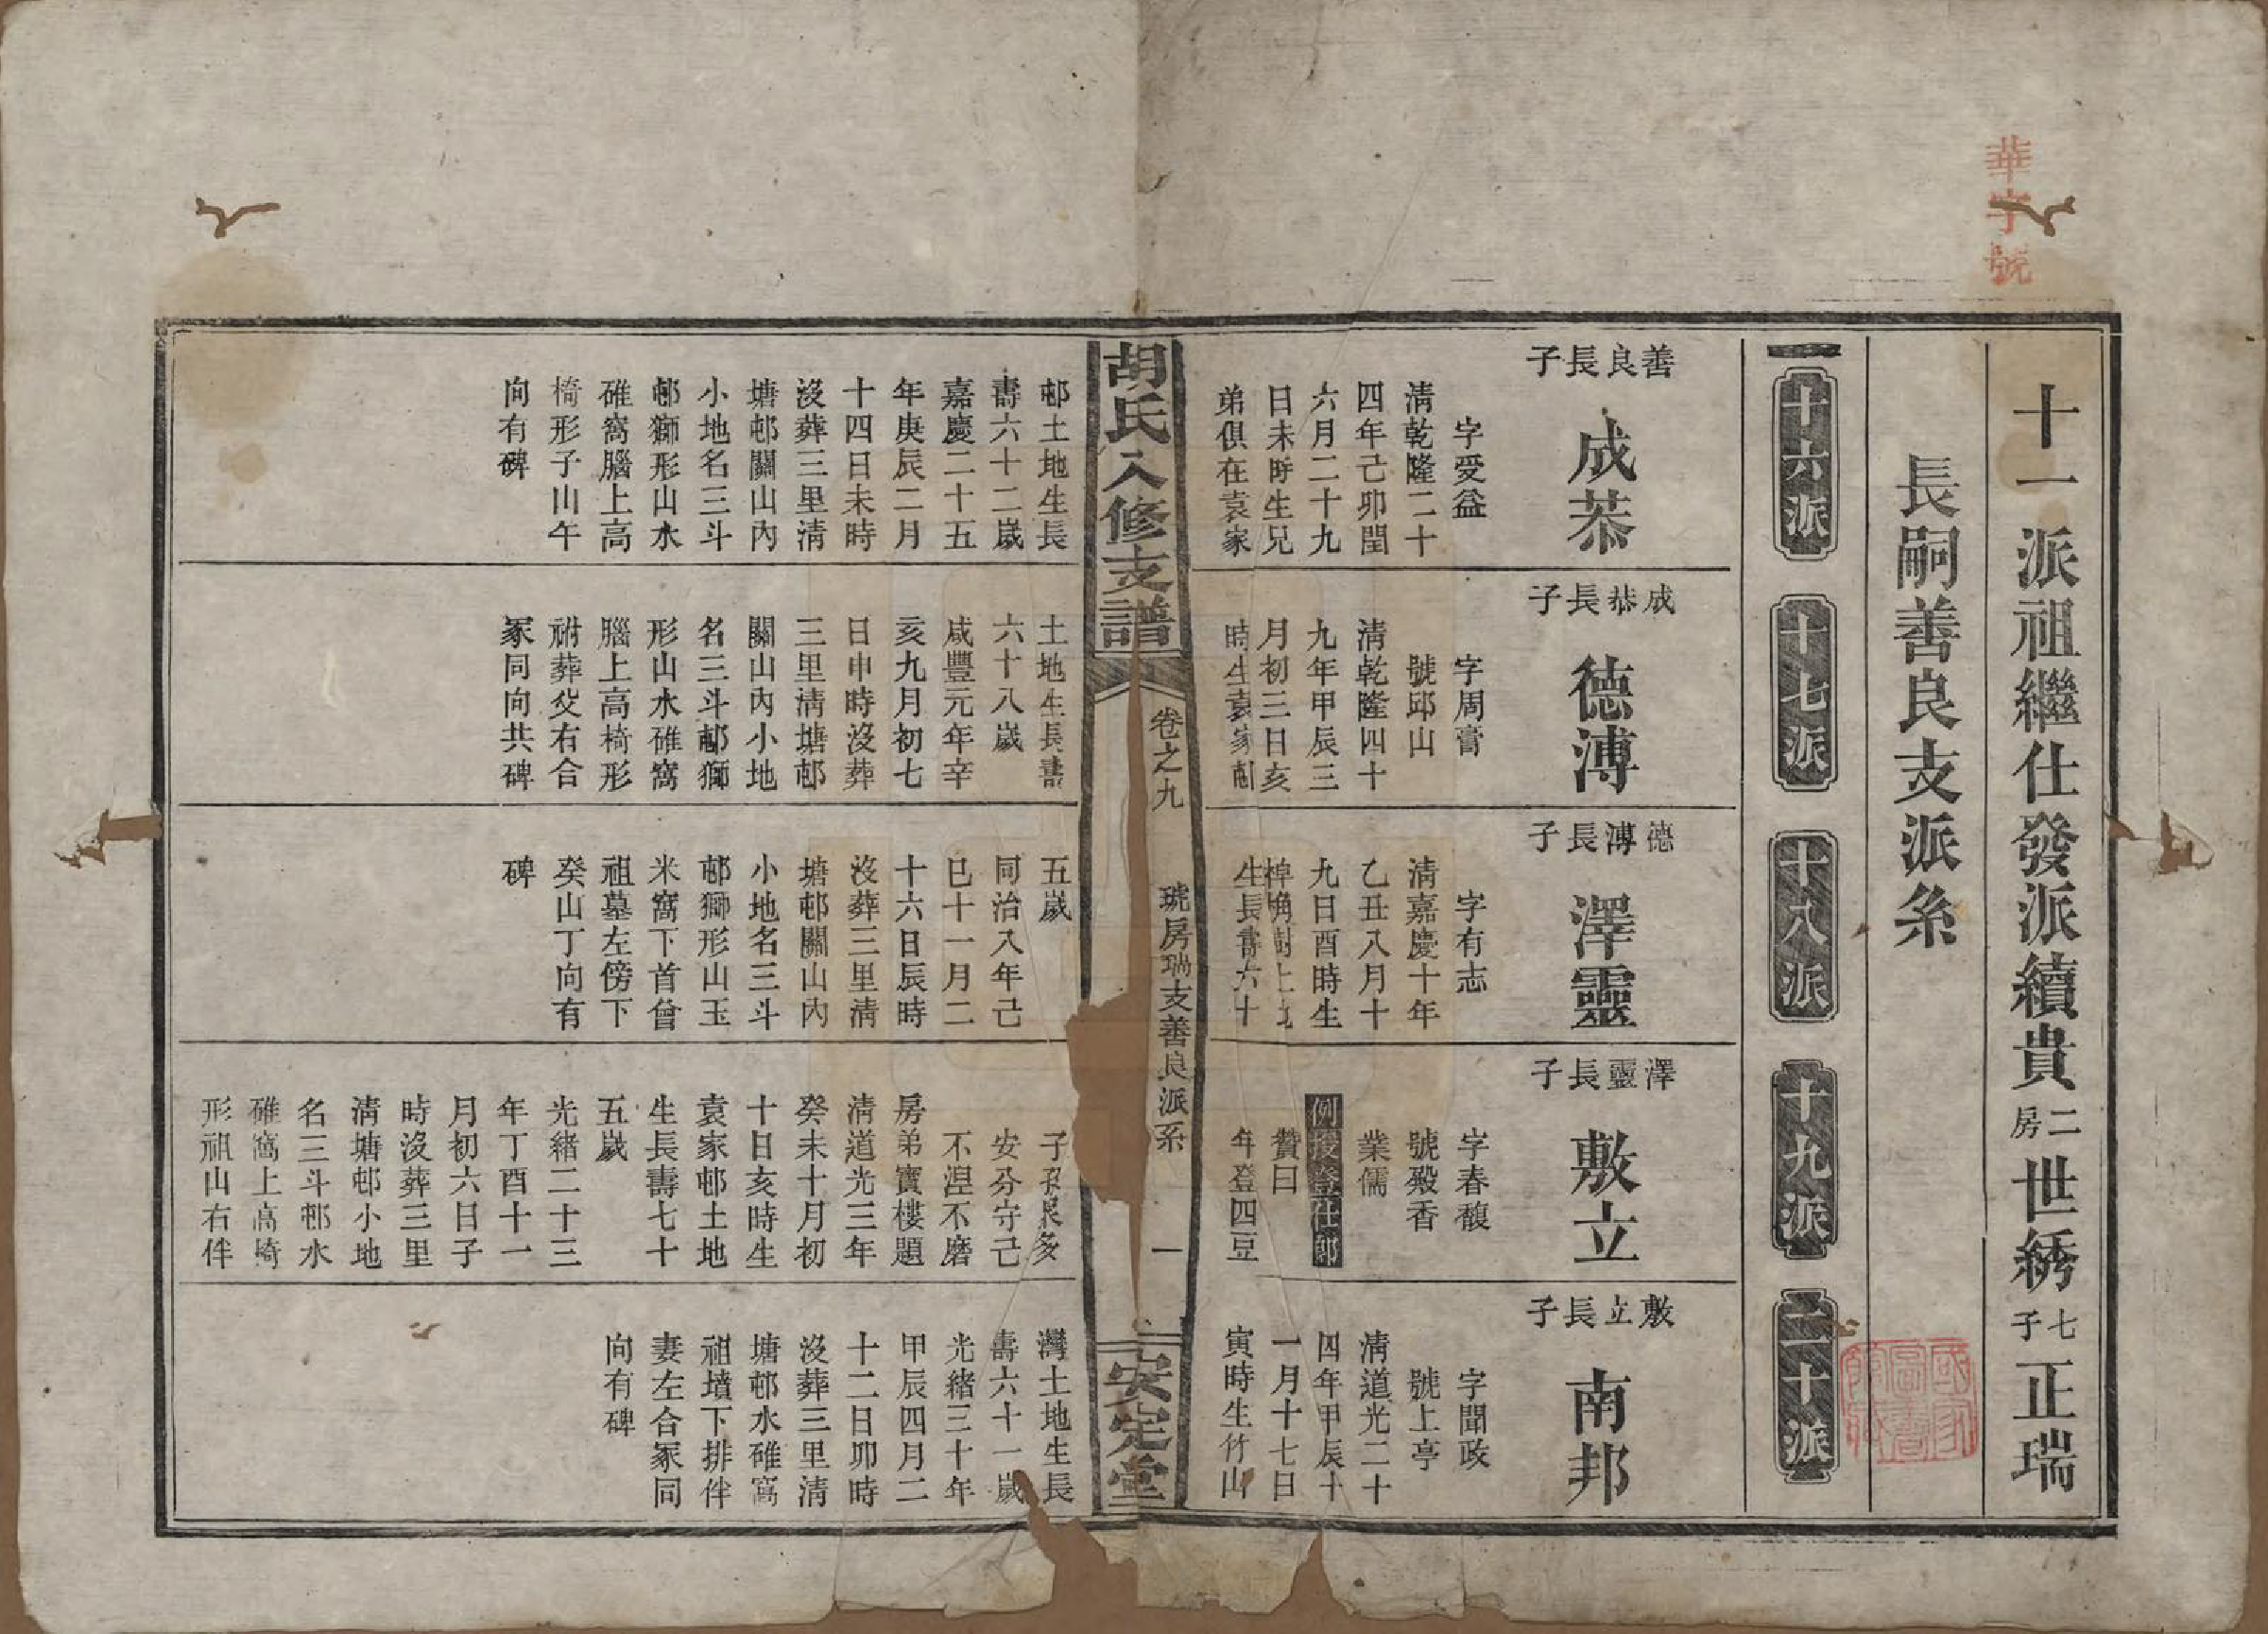 華字號
十一派祖繼仕發派續貴二房世綉七子正瑞
長嗣善良支派系
十六派
十七派
十八派
十九派
二十派
善良長子
成恭
字受益
清乾隆二十
四年己卯閏
六月二十九
日未時生兄
弟俱在袁家
邨土地生長
壽六十二歲
嘉慶二十五
年庚辰二月
十四日未時
沒葬三里清
塘邨關山內
小地名三斗
邨獅形山水
碓窩腦上高
椅形子山午
向有碑
成恭長子
德溥
字周膏
號邱山
清乾隆四十
九年甲辰三
月初三日亥
時生袁家邨
土地生長壽
六十八歲
咸豐元年辛
亥九月初七
日申時沒葬
三里清塘邨
關山內小地
名三斗邨獅
形山水碓窩
腦上高椅形
祔葬父右合
冢同向共碑
德溥長子
澤靈
字有志
清嘉慶十年
乙丑八月十
九日酉時生
樹土
生長壽六十
五歲
同治八年己
巳十一月二
十六日辰時
沒葬三里清
塘邨關山內
小地名三斗
邨獅形山玉
米窩下首曾
祖墓左傍下
癸山丁向有
碑
澤靈長子
敷立
字春馥
號殿香
業儒
例授登仕郎
贊曰
年登四豆
子孫眾多
安分守己
不涅不磨
房弟寶樓題
清道光三年
癸未十月初
十日亥時生
袁家邨土地
生長壽七十
五歲
光緒二十三
年丁酉十一
月初六日子
時沒葬三里
清塘邨小地
名三斗邨水
碓窩上高椅
形祖山右伴
敷立長子
南邦
字聞政
號上亭
清道光二十
四年甲辰十
一月十七日
寅時生竹山
灣土地生長
壽六十一歲
光緒三十年
甲辰四月二
十二日卯時
沒葬三里清
塘邨水碓窩
祖墳下排伴
妻左合冢同
向有碑
胡氏八修支譜
卷之九
琥房瑞支善良派系
一
安定堂